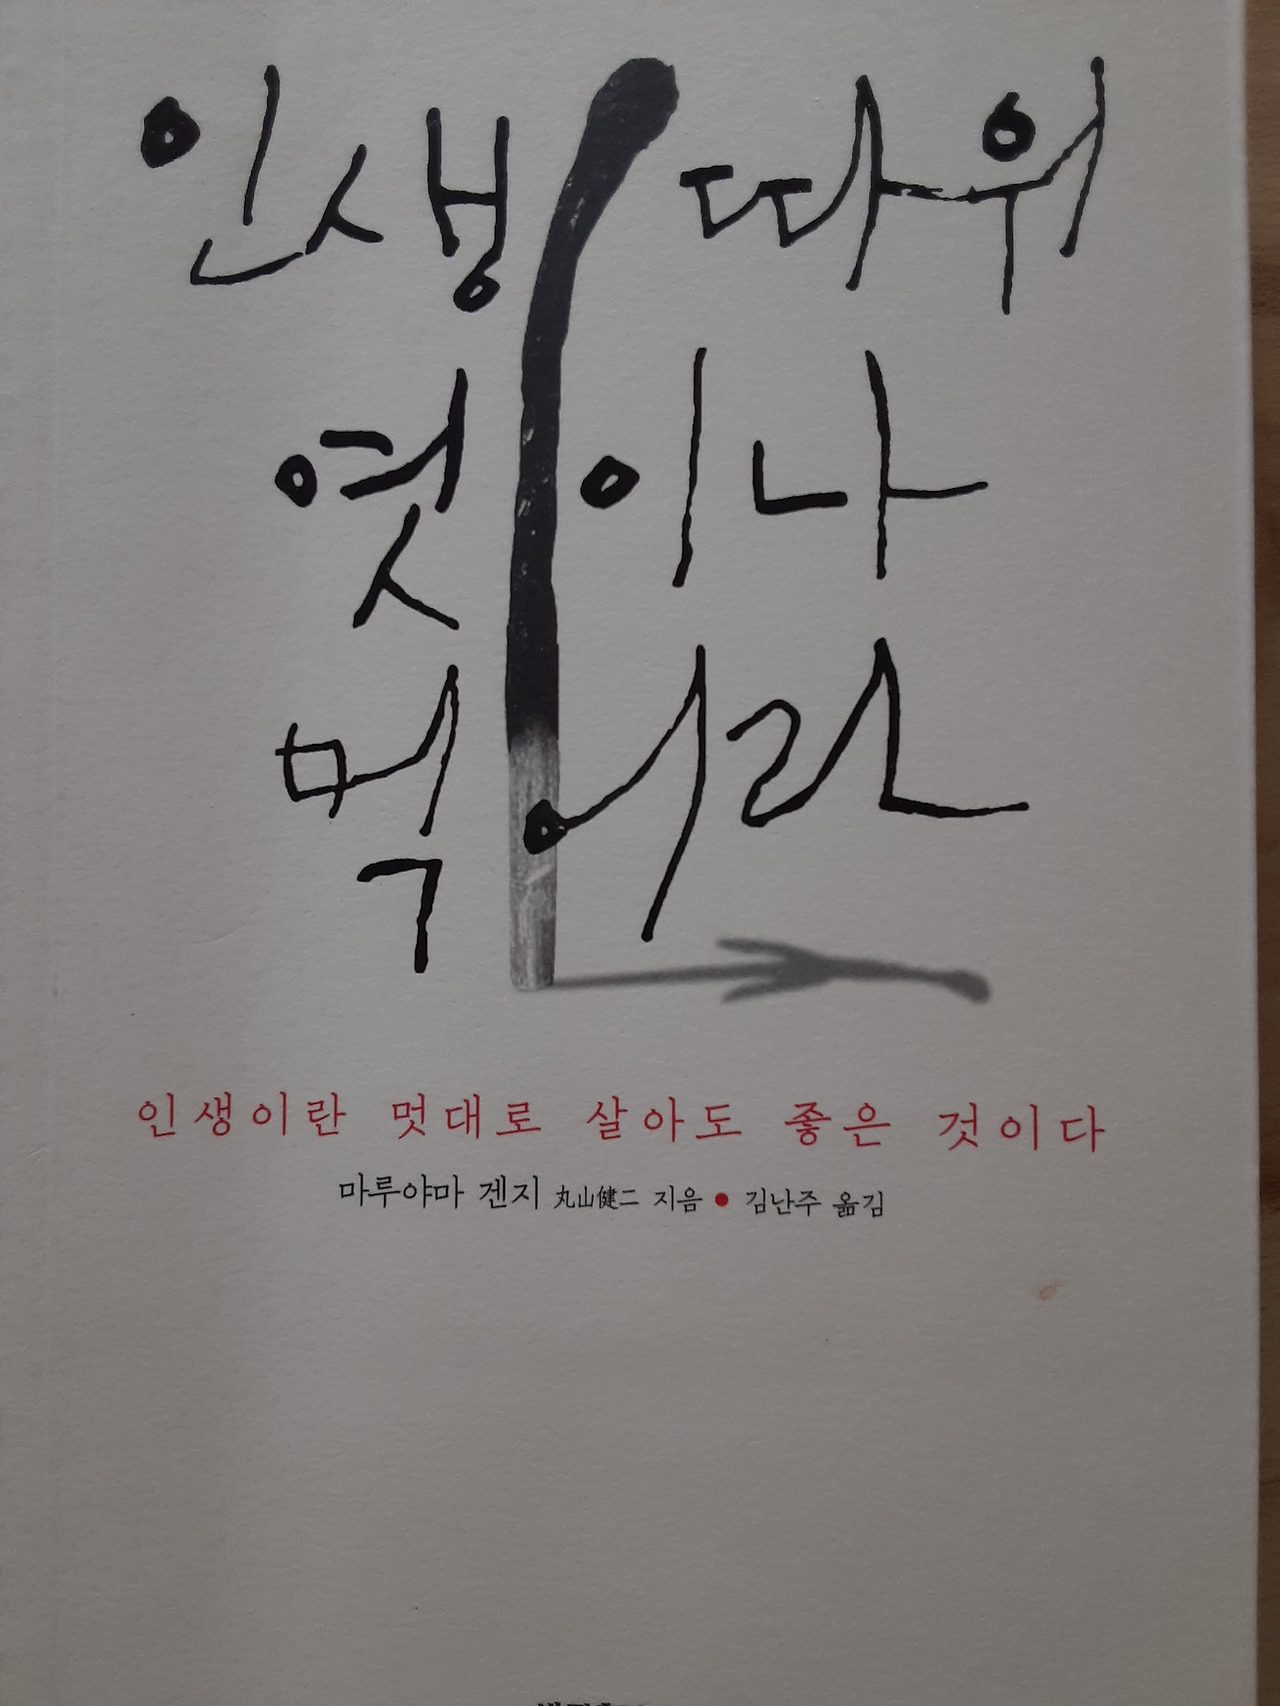 인생 따위
엿이나
먹어라
인생이란 멋대로 살아도 좋은 것이다
마루야마 겐지 丸山健二 지음 ● 김난주 옮김